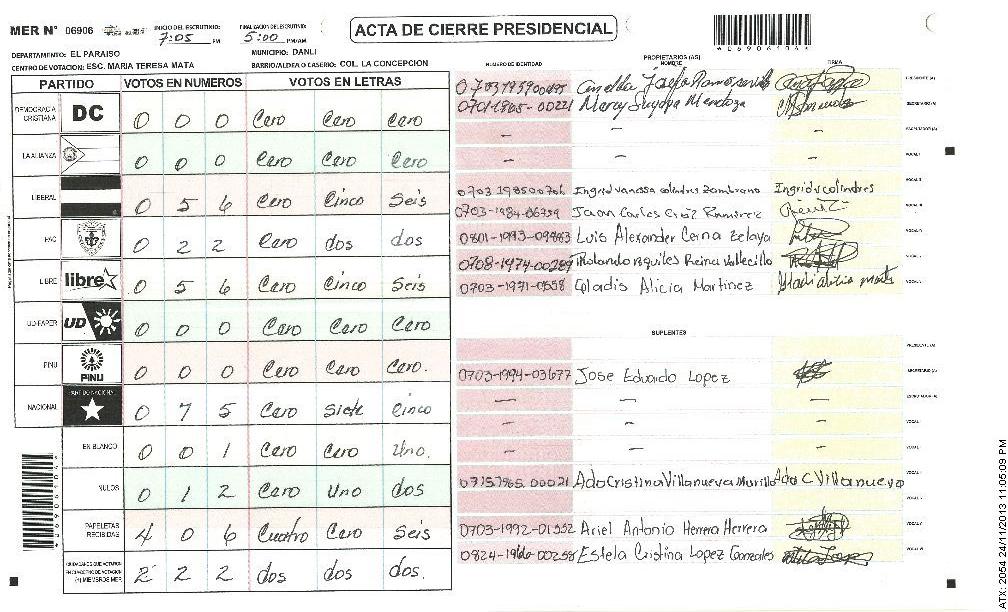 MER N° 06906
INICIO DEL ESCRUTINIO: 7:05 PM
FINALIZACION DEL ESCRUTINIO: 5:00 PM/AM
ACTA DE CIERRE PRESIDENCIAL
DEPARTAMENTO: EL PARAISO
MUNICIPIO: DANLI
CENTRO DE VOTACION: ESC. MARIA TERESA MATA
BARRIO/ALDEA O CASERIO: COL. LA CONCEPCION
PARTIDO VOTOS EN NUMEROS VOTOS EN LETRAS
DEMOCRACIA CRISTIANA DC 0 0 0 Cero Cero Cero
LA ALIANZA 0 0 0 Cero Cero Cero
LIBERAL 0 5 6 Cero Cinco Seis
PAC 0 2 2 Cero dos dos
LIBRE libre 0 5 6 Cero Cinco Seis
UD-FAPER UD 0 0 0 Cero Cero Cero
PINU PINU 0 0 0 Cero Cero Cero.
NACIONAL PARTIDO NACIONAL 0 7 5 Cero Siete Cinco
EN BLANCO 0 0 1 Cero Cero Uno.
NULOS 0 1 2 Cero Uno dos
PAPELETAS RECIBIDAS 4 0 6 Cuatro Cero Seis
CIUDADANOS QUE VOTARON EN CUADERNO DE VOTACION (+) MIEMBROS MER 2 2 2 dos dos dos.
PROPIETARIOS (AS)
NUMERO DE IDENTIDAD NOMBRE FIRMA
PRESIDENTE (A)
Mercy Suyapa Mendoza SECRETARIO (A)
- - - ESCRUTADOR (A)
- - - VOCAL I
Ingrid vanessa colindres Zambrano Ingridvcolindres VOCAL II
0703-1984-06759 Juan Carlos Cruz Ramirez
Luis Alexander Cerna Zelaya
0708-1974-00289 Rolando Aquiles Reina Vallecillo
0703-1971-0558 Gladis Alicia Martinez
SUPLENTES
PRESIDENTE (A)
0703-1994-03677 Jose Eduardo Lopez SECRETARIO (A)
- - - ESCRUTADOR (A)
- - - VOCAL
- - - VOCAL
Ada Cristina Villanueva Murillo Ada C Villanueva
0703-1992-01552 Ariel Antonio Herrera Herrera
Estela Cristina Lopez Gonzales
ATX: 2054 24/11/2013 11:05:09 PM